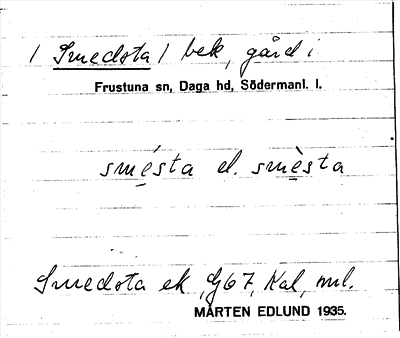 / Smedsta / bek, gård i
Frustuna sn, Daga hd, Södermanl. l.
smésta el. smèsta
Smedsta ek, Gj67, Kal, ml.
MÅRTEN EDLUND 1935.